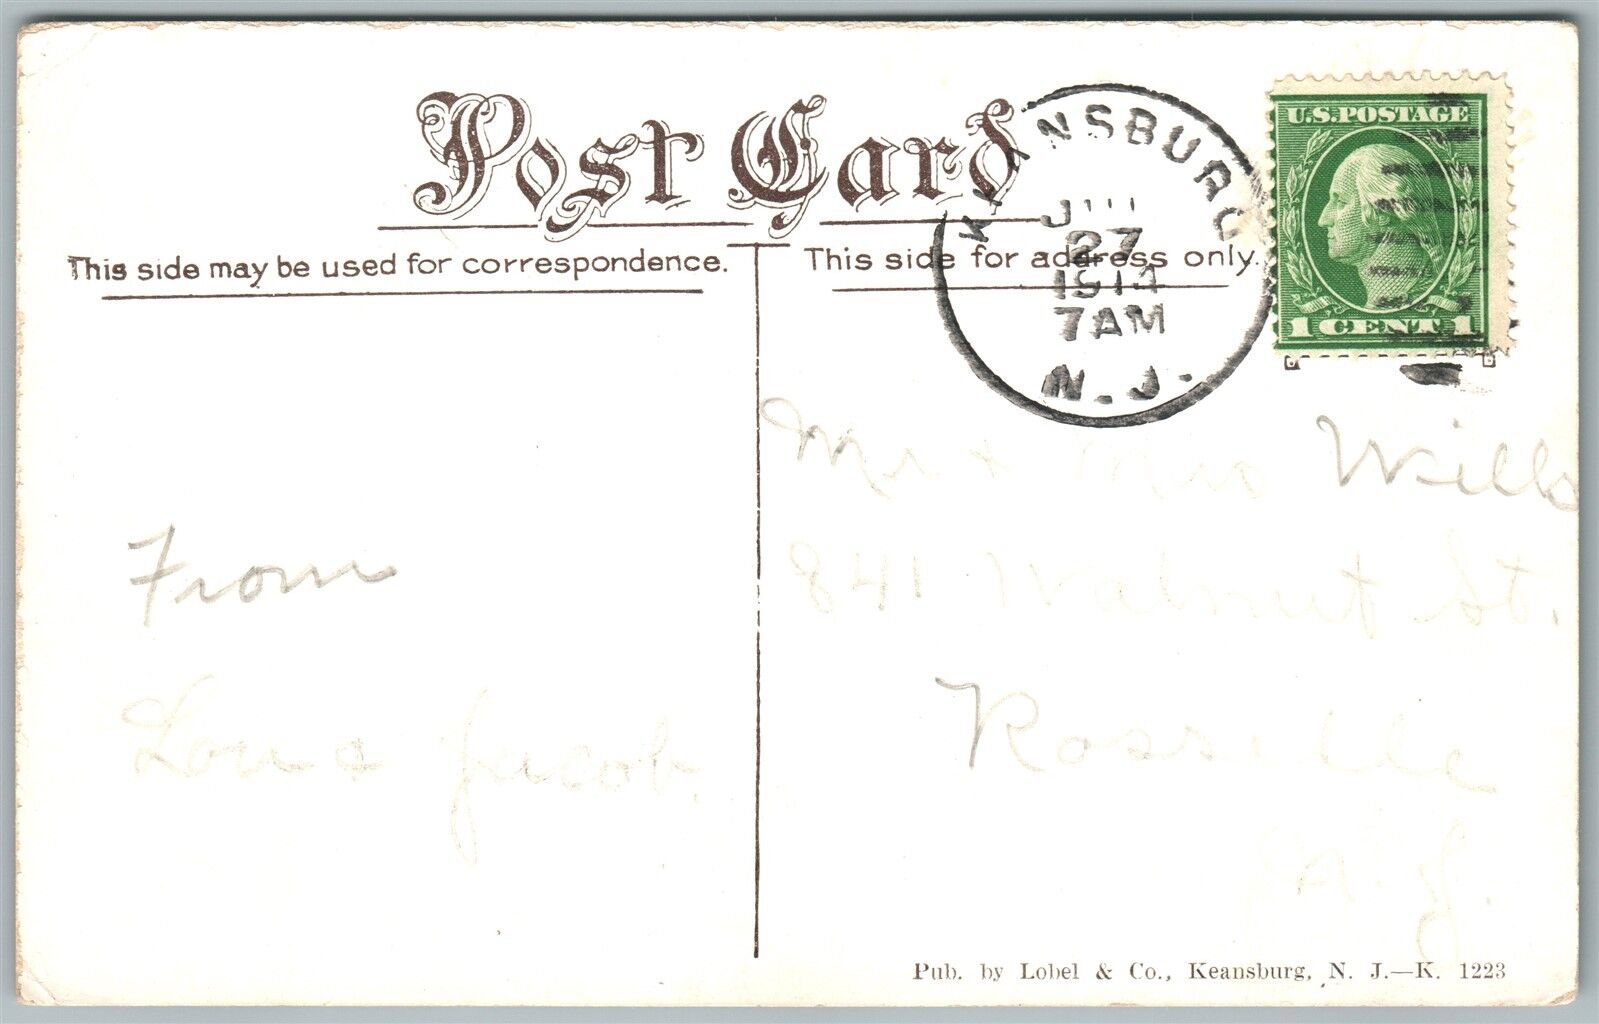 Post Card
This side may be used for correspondence.
This side for address only.
KEANSBURG
27
1914
7AM
N.J.
U.S.POSTAGE
1 CENT 1
Mr + Mrs Wills
841 Walnut St.
Roselle
N.J.
From
Lou & Jacob.
Pub. by Lobel & Co., Keansburg, N. J.—K. 1223